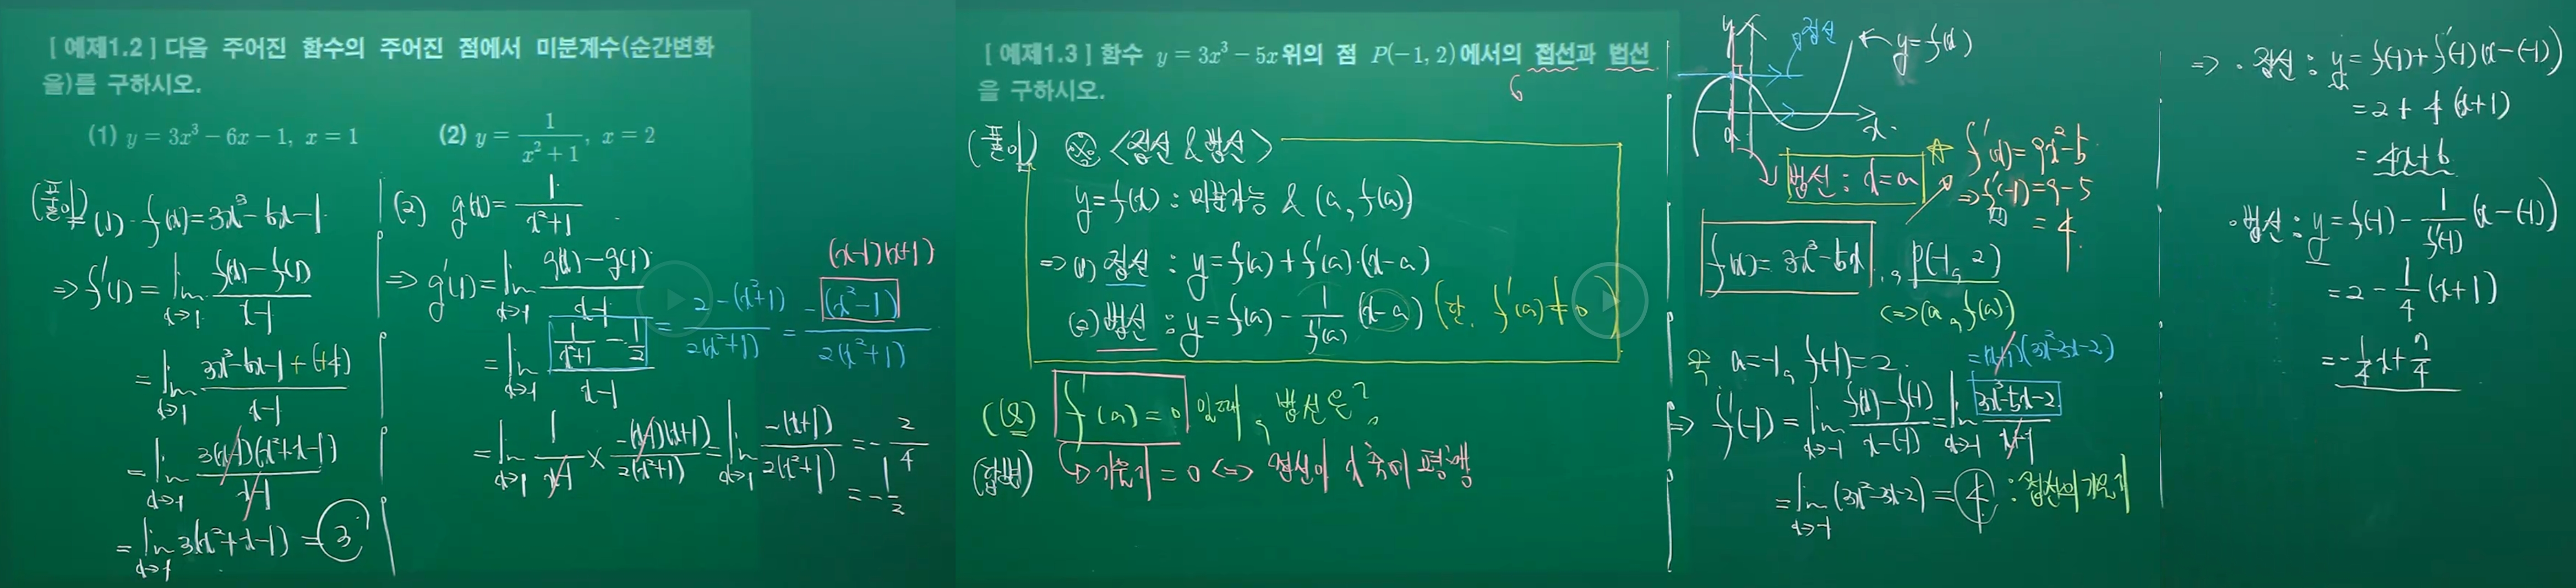 [ 예제1.2 ] 다음 주어진 함수의 주어진 점에서 미분계수(순간변화
율)를 구하시오.
(1) y = 3x³ − 6x − 1, x = 1
(2) y = 1/(x²+1), x = 2
(풀이) (1) f(x) = 3x³ − 6x − 1
⇒ f'(1) = lim_{x→1} (f(x) − f(1))/(x−1)
= lim_{x→1} (3x³−6x−1+(+4))/(x−1)
= lim_{x→1} 3(x−1)(x²+x−1)/(x−1)
= lim_{x→1} 3(x²+x−1) = 3
(2) g(x) = 1/(x²+1)
⇒ g'(1) = lim_{x→1} (g(x) − g(1))/(x−1)
= lim_{x→1} (1/(x²+1) − 1/2)/(x−1)
= (2−(x²+1))/(2(x²+1)) = −(x²−1)/(2(x²+1))
(x−1)(x+1)
= lim_{x→1} 1/(x−1) × −(x−1)(x+1)/(2(x²+1)) = lim_{x→1} −(x+1)/(2(x²+1)) = −2/4
= −1/2
[ 예제1.3 ] 함수 y = 3x³ − 5x위의 점 P(−1, 2)에서의 접선과 법선
을 구하시오.
(풀이) ※ <접선 & 법선>
y = f(x) : 미분가능 & (a, f(a))
⇒ (1) 접선 : y = f(a) + f'(a)·(x−a)
(2) 법선 : y = f(a) − 1/f'(a) (x−a) (단, f'(a) ≠ 0)
(Q) f'(a) = 0 일때, 법선은?
(답변) → 기울기 = 0 ⇔ 접선이 x축에 평행
y
접선
y = f(x)
x
a
법선 : x = a
☆ f'(x) = 9x²−5
⇒ f'(−1) = 9−5
= 4
f(x) = 3x³−5x, P(−1, 2)
⇔ (a, f(a))
a = −1, f(−1) = 2
= (x+1)(3x²−3x−2)
⇒ f'(−1) = lim_{x→−1} (f(x)−f(−1))/(x−(−1)) = lim_{x→−1} (3x³−5x−2)/(x+1)
= lim_{x→−1} (3x²−3x−2) = 4 : 접선의 기울기
⇒ · 접선 : y = f(−1) + f'(−1)(x−(−1))
= 2 + 4(x+1)
= 4x+6
· 법선 : y = f(−1) − 1/f'(−1) (x−(−1))
= 2 − 1/4 (x+1)
= −1/4 x + 7/4